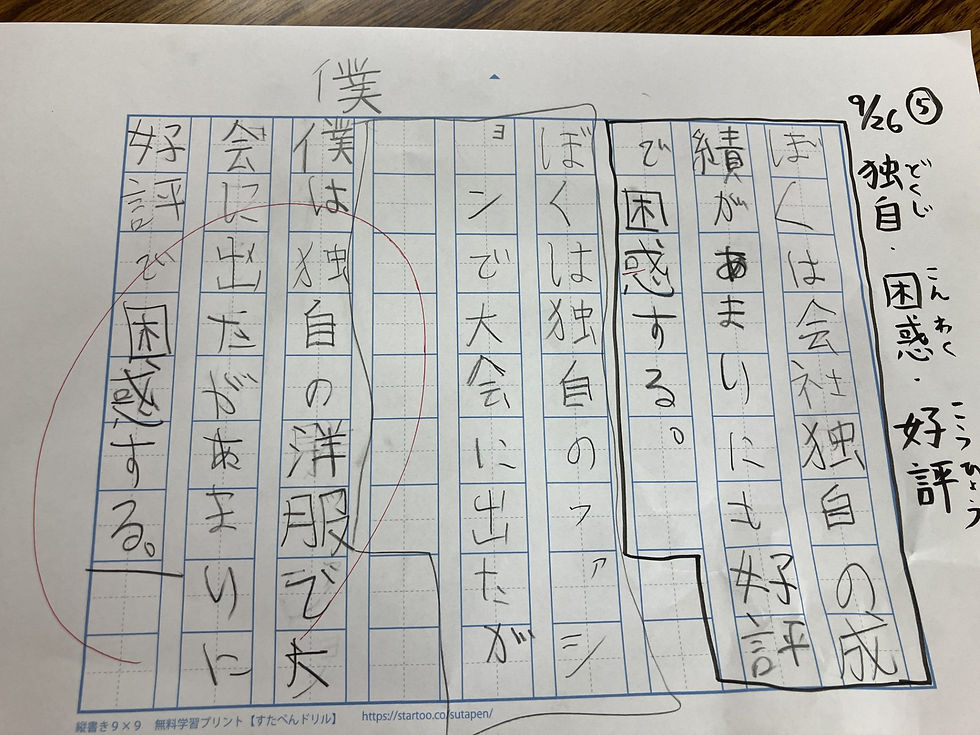 9/26 ⑤
独自・困惑・好評
どくじ
こんわく
こうひょう
ぼくは会社独自の成
績があまりにも好評
で困惑する。
ぼくは独自のファシ
ョンで大会に出たが
僕
僕は独自の洋服で大
会に出たがあまりに
好評で困惑する。
縦書き9×9 無料学習プリント【すたぺんドリル】 https://startoo.co/sutapen/